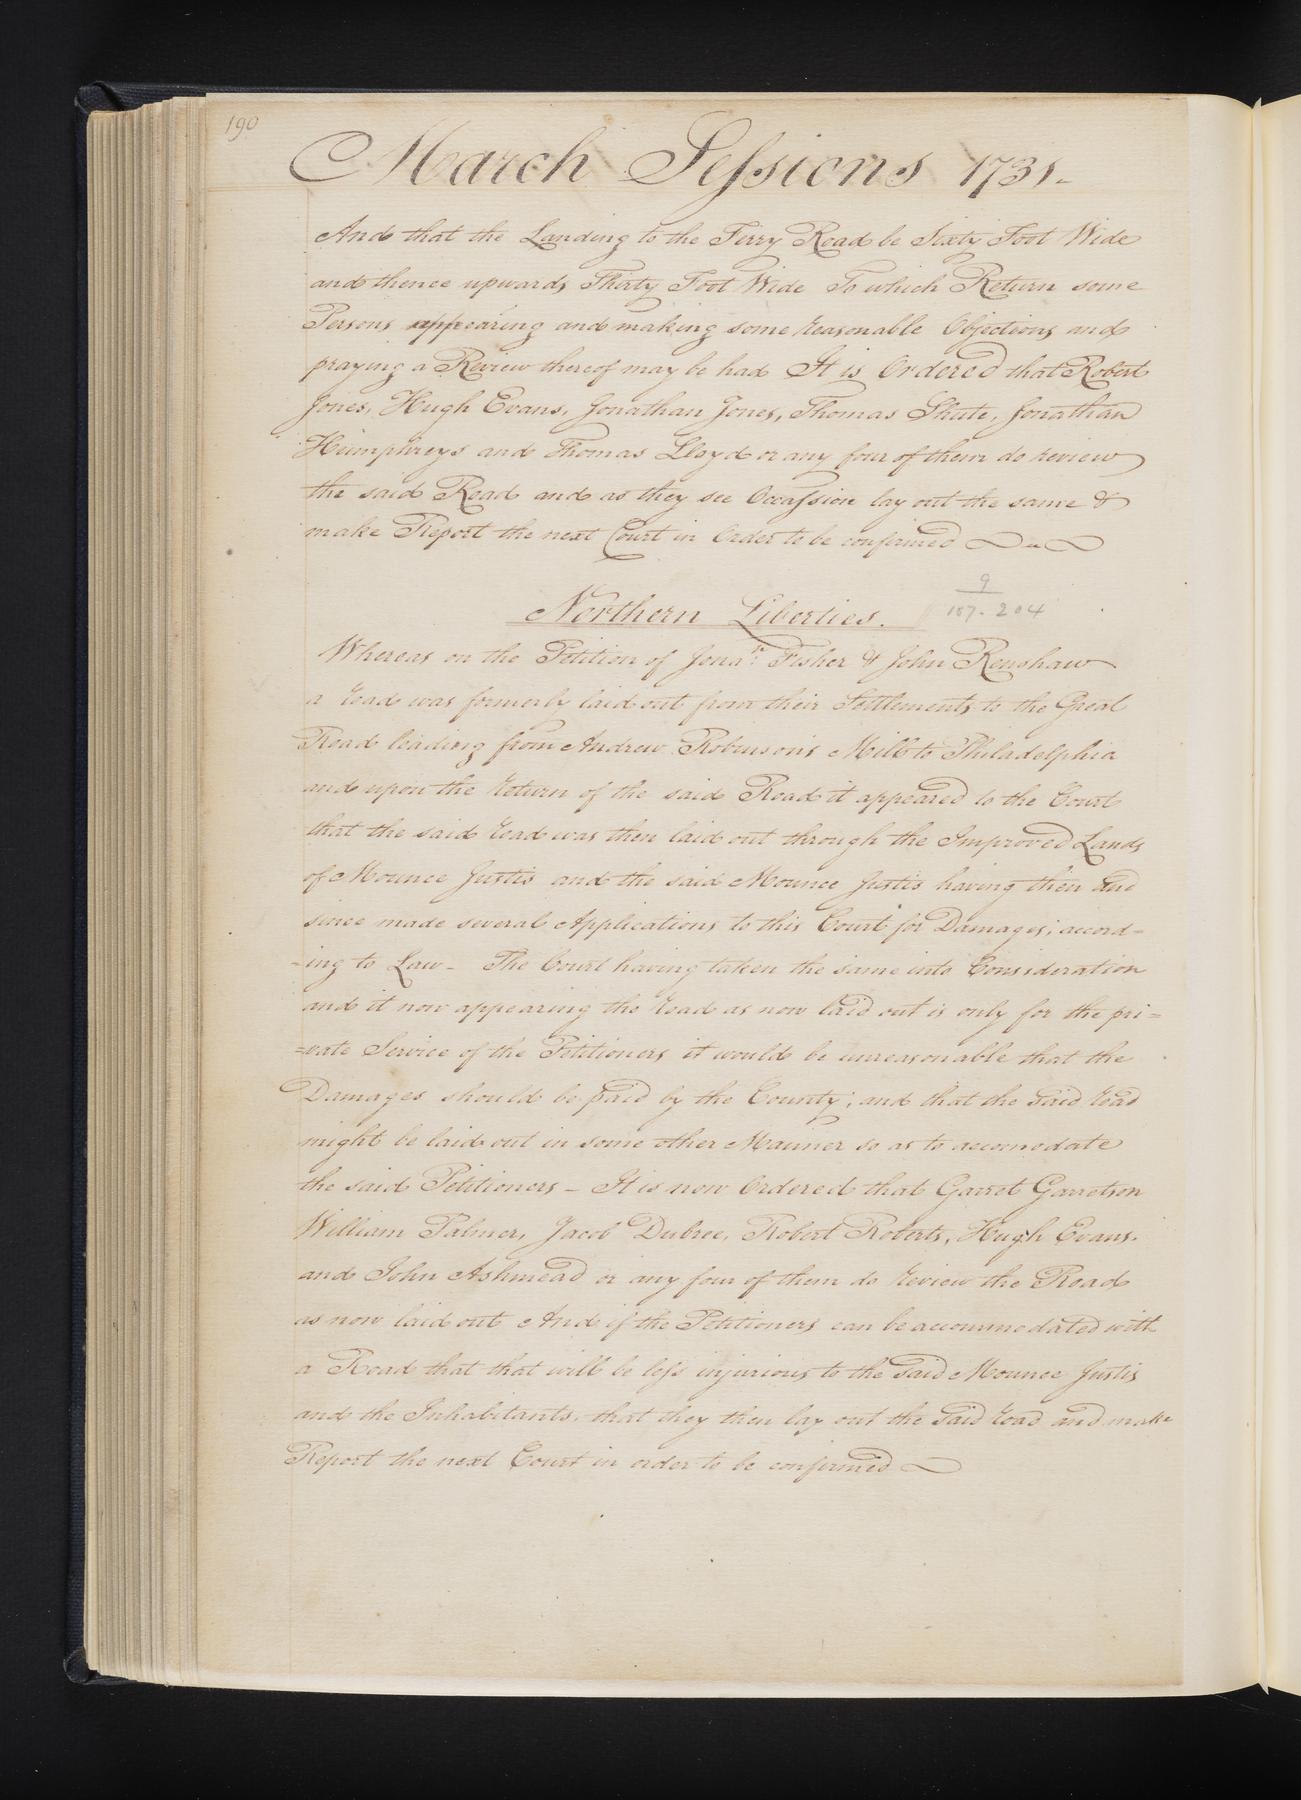 190
March Sessions 1731-
And that the Landing to the Ferry Road be Sixty Foot Wide
and thence upwards Thirty Foot Wide To which Return some
Persons appearing and making some reasonable Objections and
praying a Review thereof may be had It is Ordered that Robert
Jones, Hugh Evans, Jonathan Jones, Thomas Shute, Jonathan
Humphreys and Thomas Lloyd or any four of them do review
the said Road and as they see Occassion lay out the same &
make Report the next Court in Order to be confirmed
9
Northern Liberties. 187-204
Whereas on the Petition of Jonan. Fisher & John Renshaw
a road was formerly laid out from their Settlements to the Great
Road leading from Andrew Robinson's Mill to Philadelphia
and upon the return of the said Road it appeared to the Court
that the said road was then laid out through the Improved Lands
of Mounce Justis and the said Mounce Justis having then and
since made several Applications to this Court for Damages; accord=
=ing to Law - The Court having taken the same into Consideration
and it now appearing the road as now laid out is only for the pri=
=vate Service of the Petitioners it would be unreasonable that the
Damages should be paid by the County; and that the said road
might be laid out in some other Manner so as to accomodate
the said Petitioners - It is now Ordered that Garret Garretson
William Palmer, Jacob Dubree, Robert Roberts, Hugh Evans.
and John Ashmead or any four of them do review the Road
as now laid out And if the Petitioners can be accommodated with
a Road that that will be less injurious to the said Mounce Justis
and the Inhabitants, that they then lay out the said road and make
Report the next Court in order to be confirmed